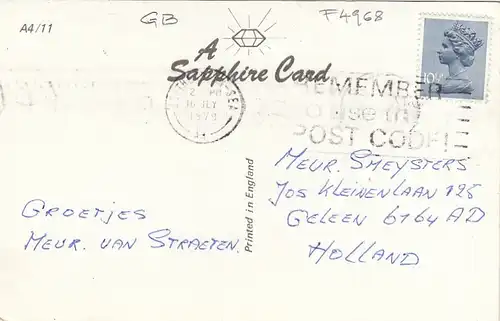 GB
F4968
A4/11
A
Sapphire Card
10½P
2 PM
16 JLY
1979
REMEMBER
use the
POST CODE!
Printed in England
GROETJES
MEUR. VAN STRAETEN.
MEUR. SMEYSTERS
JOS KLEINENLAAN 125
GELEEN 6164 AD
HOLLAND